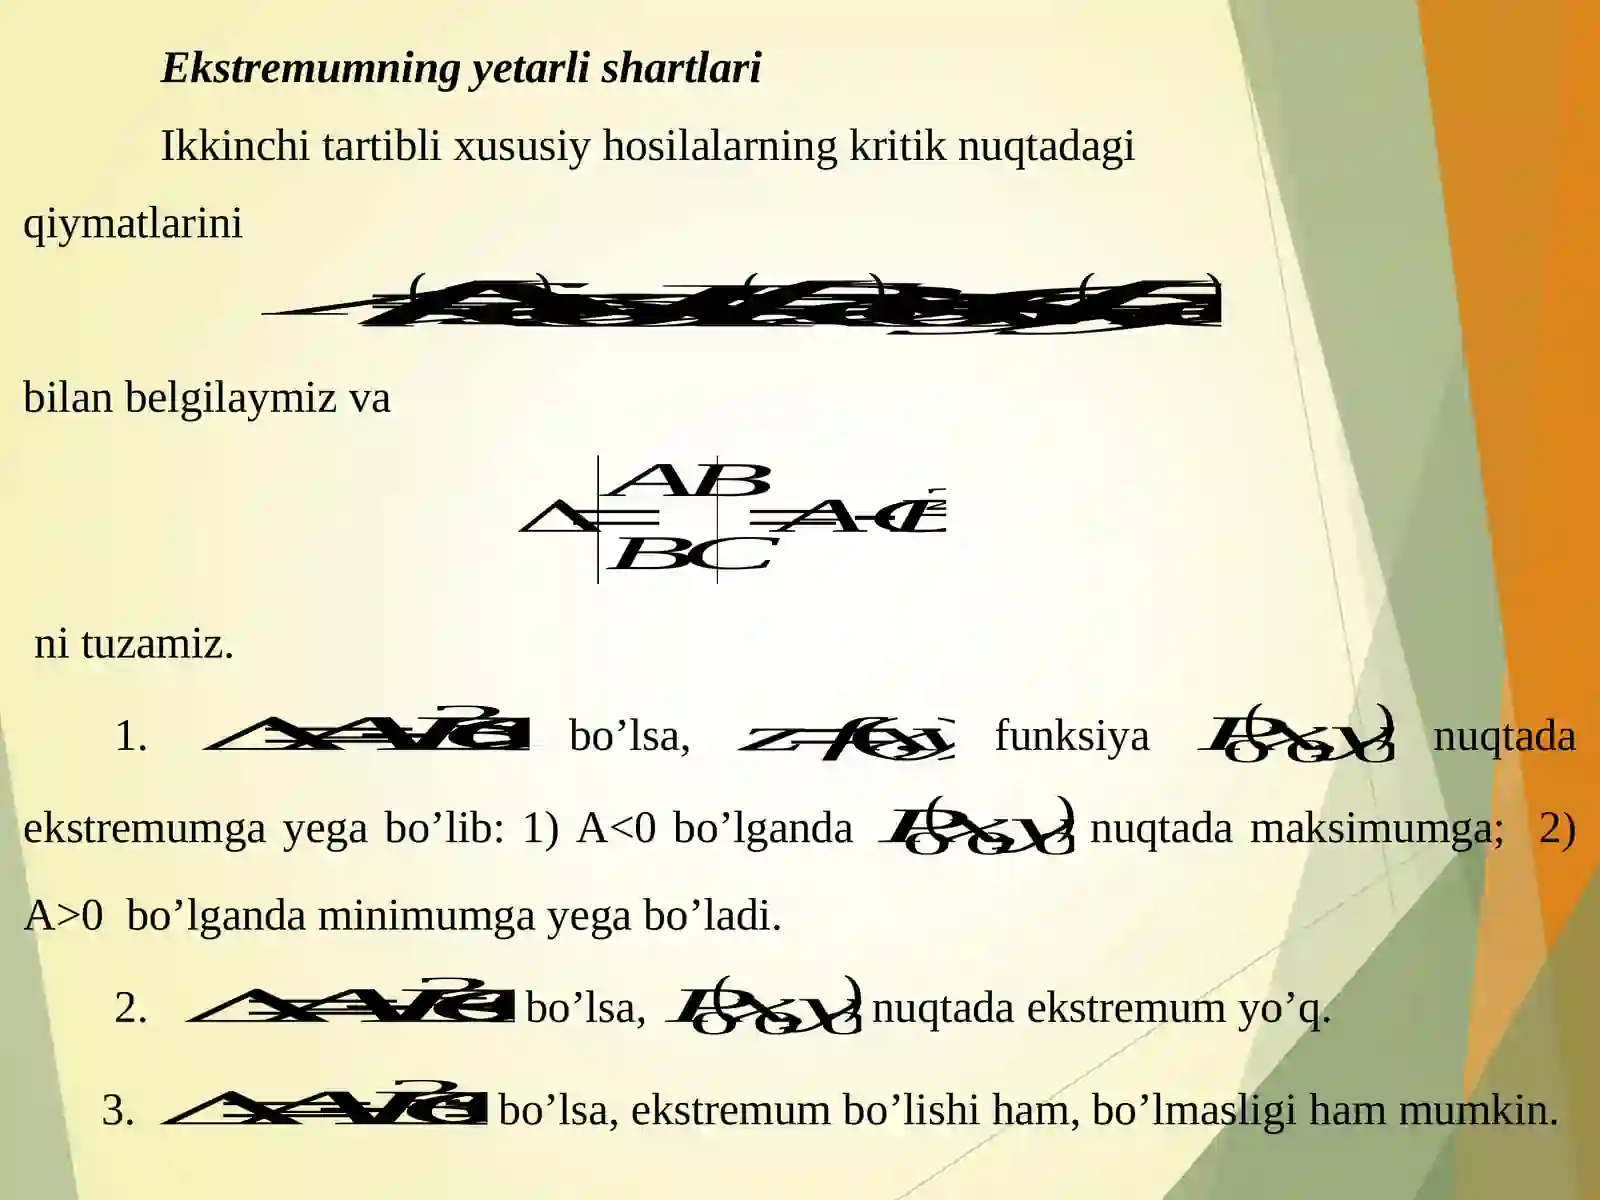 Ekstremumning yetarli shartlari
Ikkinchi tartibli xususiy hosilalarning kritik nuqtadagi
qiymatlarini
bilan belgilaymiz va
A B
Δ = = AC - B²
B C
ni tuzamiz.
1. bo’lsa, z=f(x,y) funksiya P₀(x₀,y₀) nuqtada
ekstremumga yega bo’lib: 1) A<0 bo’lganda P₀(x₀,y₀) nuqtada maksimumga; 2)
A>0 bo’lganda minimumga yega bo’ladi.
2. bo’lsa, P₀(x₀,y₀) nuqtada ekstremum yo’q.
3. bo’lsa, ekstremum bo’lishi ham, bo’lmasligi ham mumkin.